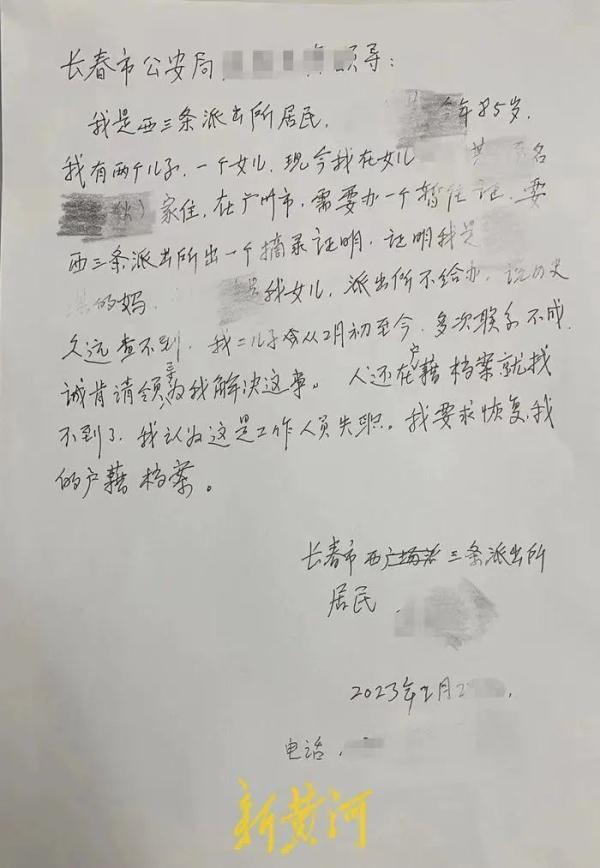 长春市公安局 领导：
我是西三条派出所居民， 今年85岁，
我有两个儿子，一个女儿，现今我在女儿 名
家住，在广州市，需要办一个暂住证，要
西三条派出所出一个摘录证明，证明我是
的妈， 是我女儿，派出所不给办，说历史
久远查不到，我二儿子从2月初至今，多次联系不成，
诚肯请领导为我解决这事。人还在户藉档案就找
不到了，我认为这是工作人员失职。我要求恢复我
的户藉档案。
长春市西三条派出所
居民
2023年2月2
电话
新黄河